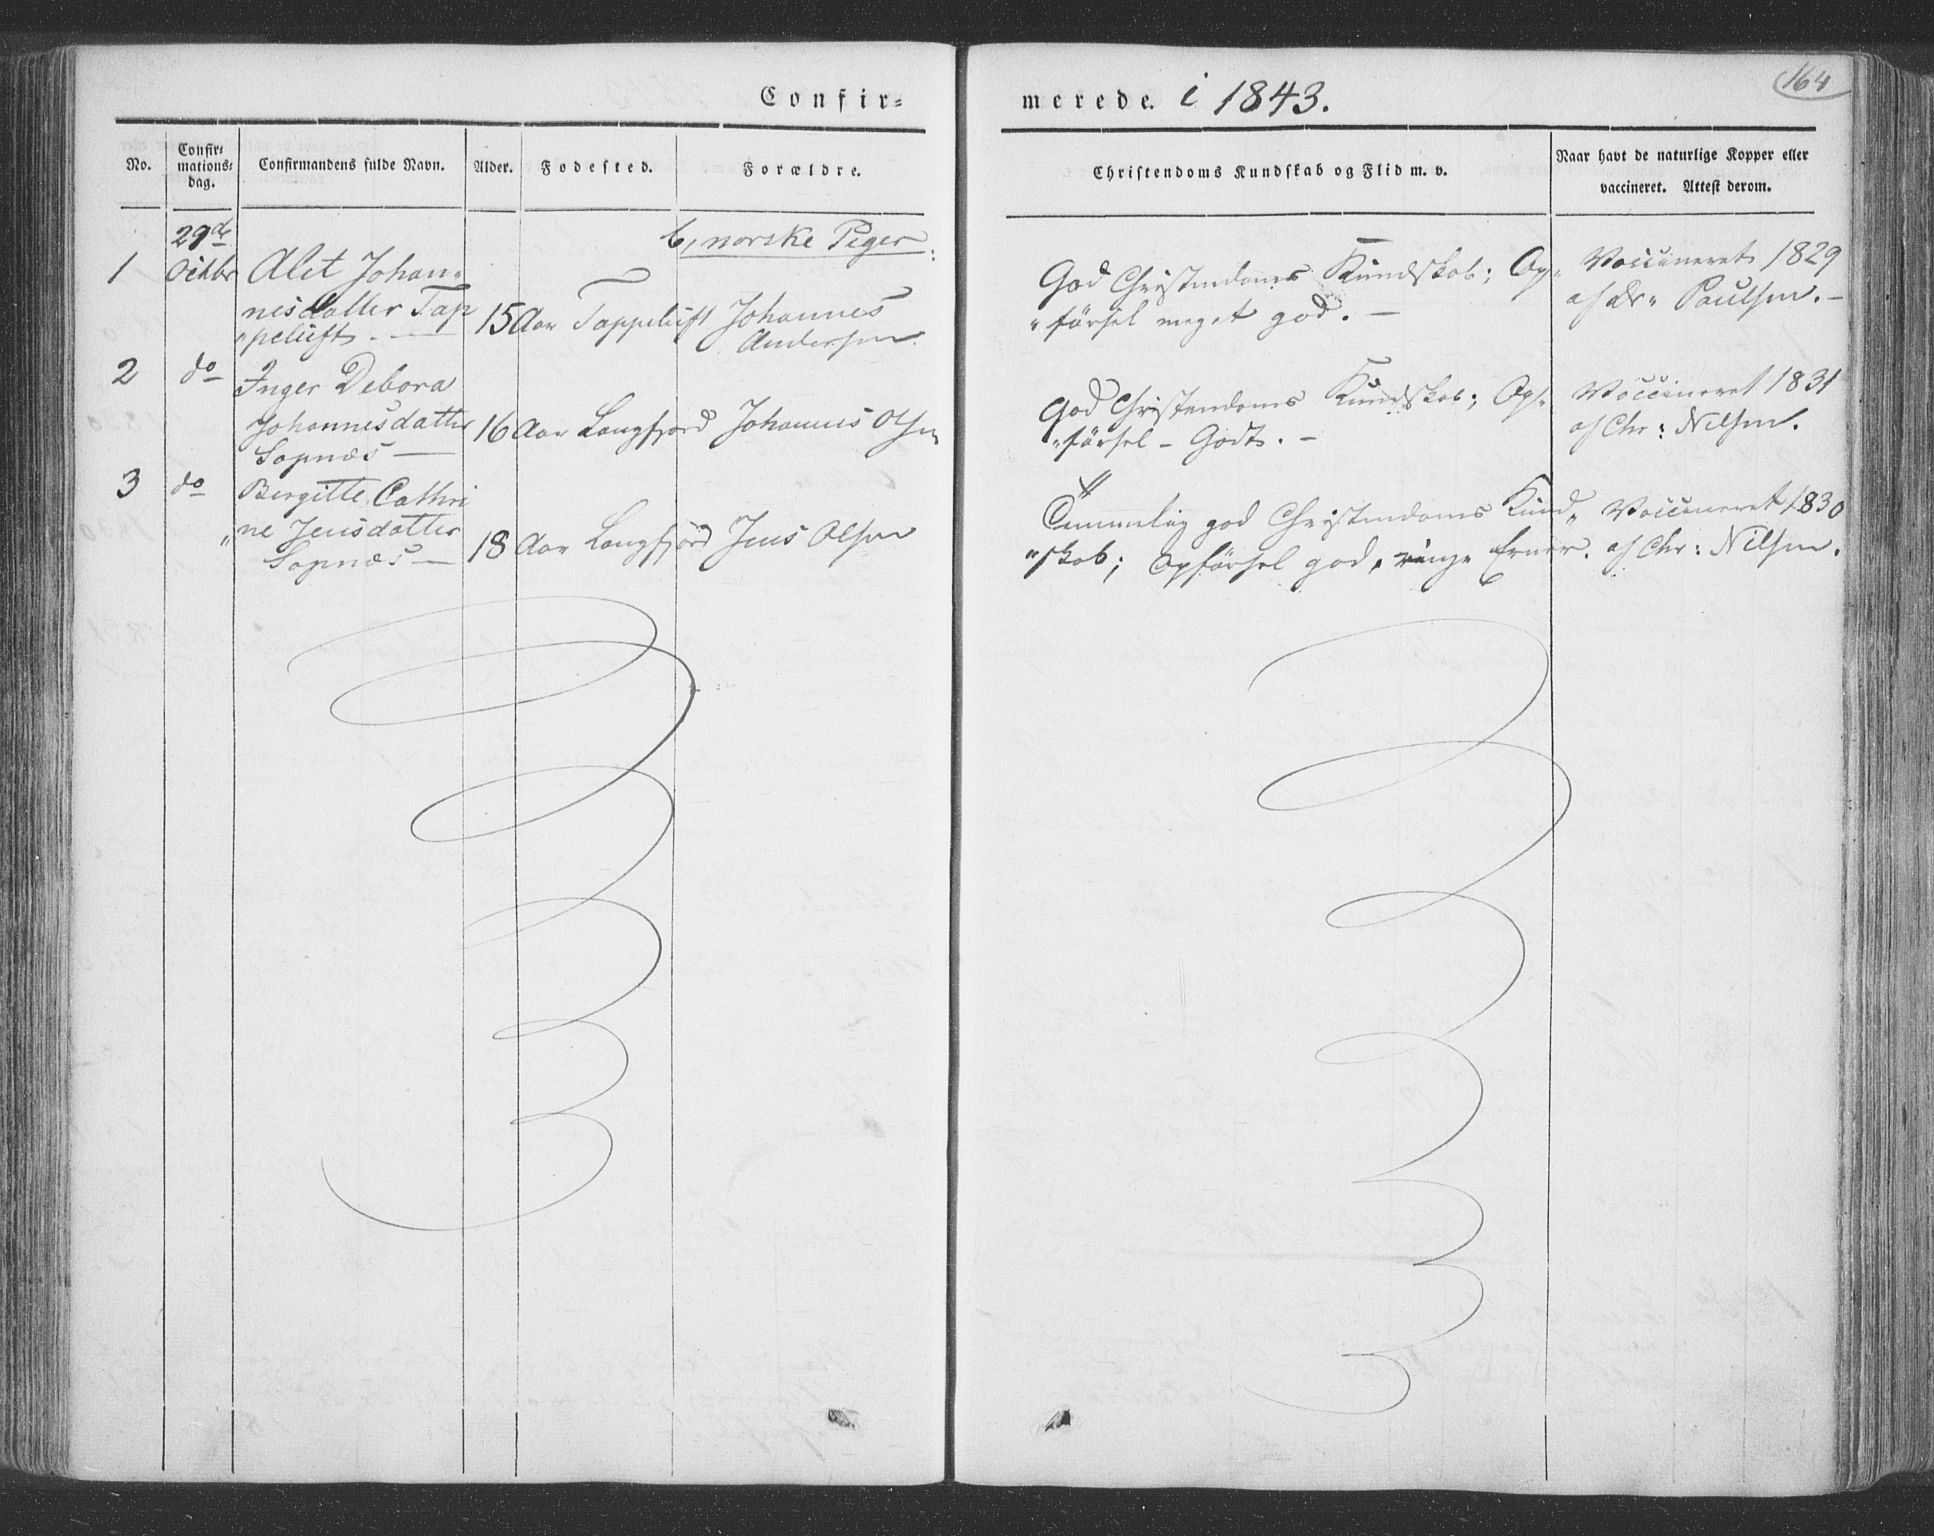 164
Confir=
merede. i 1843.
No.
Confir=
mations=
dag.
Confirmandens fulde Navn.
Alder.
Fodested.
Forældre.
Christendoms Kundskab og Flid m. v.
Naar havt de naturlige Kopper eller
vaccineret. Attest derom.
29de
b, norske Piger.
1 Octbr Alet Johan-
nesdatter Tap
"peluft. — 15 Aar Tappeluft Johannes
Andersen.
God Christendoms Kundskab; Op-
"førsel meget god. —
Vaccineret 1829
af Dr" Paulsen. —
2 do Inger Debora
Johannesdatter 16 Aar Langfjord Johannes Olsen
Sopnæs —
God Christendoms Kundskab; Op-
"førsel – Godt. –
Vaccineret 1831
af Chr: Nilsen.
3 do Bergitte Cathri
"ne Jensdatter
Sopnæs — 18 Aar Langfjord Jens Olsen
Temmelig god Christendoms Kund"
"skab; Opførsel god, ringe Evner.
Vaccineret 1830
af Chr: Nilsen.